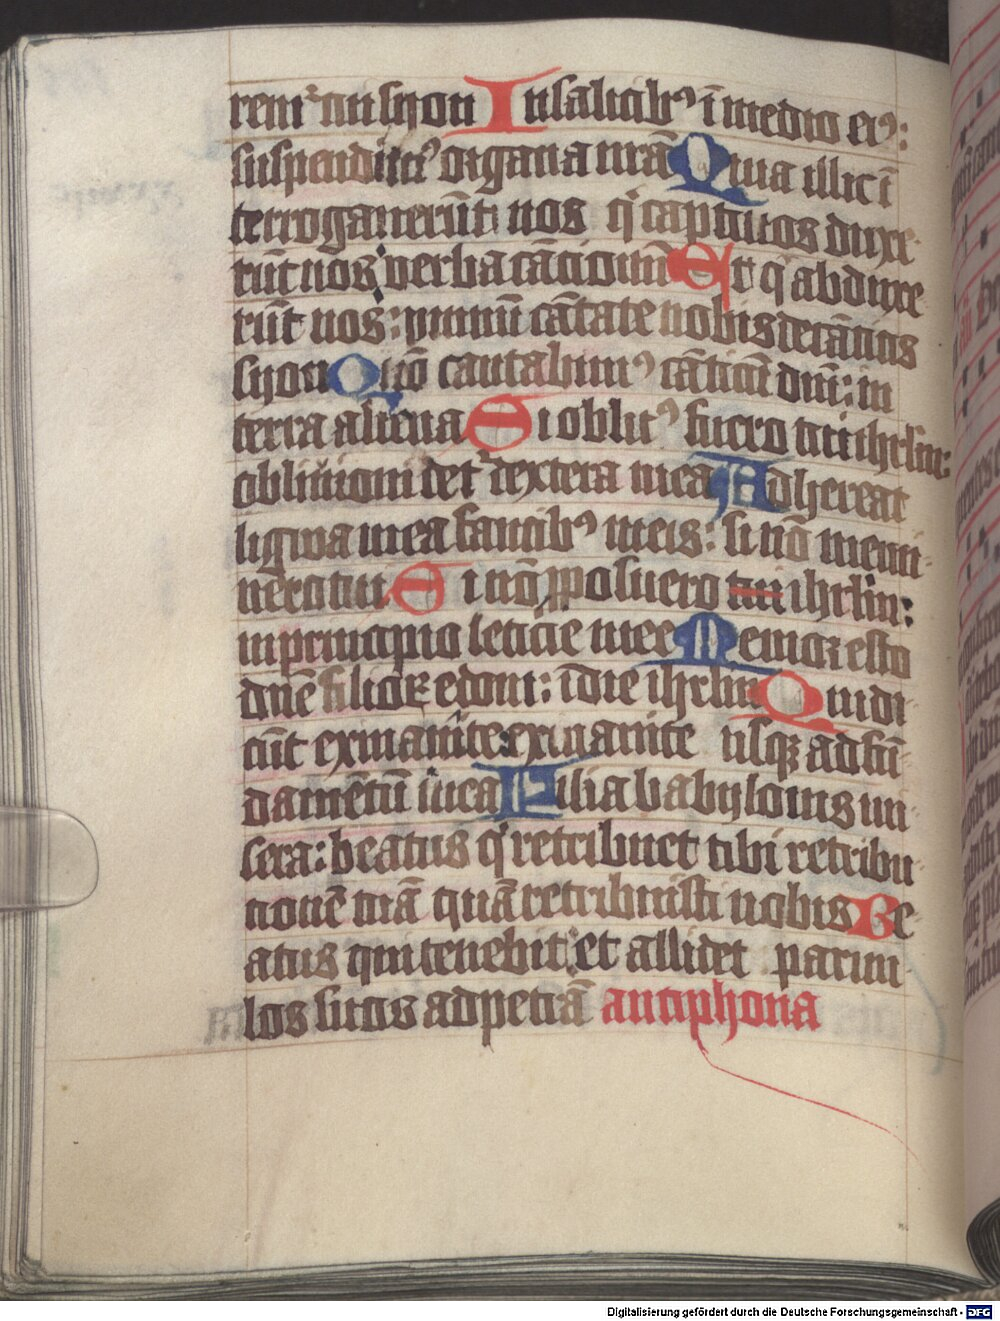 rem᷑ tui syon In salicib⁹ ī medio ei⁹:
suspendim⁹ organa nr̄a Quia illic ī
terrogauerūt nos q̄ captiuos duxe
rūt nos verba cācionū Et q̄ abduxe
rūt nos: ymnū cātate nobis de cāticis
syon Quō cantabim⁹ cāticū dn̄i: in
terra aliena Si oblit⁹ fuero tui ihrlm:
obliuioni det᷑ dextera mea Adhereat
ligwa mea faucib⁹ meis: si nō memi
nero tui Si nō ꝓposuero tui ihrlm:
in principio leticie mee Memor esto
dn̄e filioꝝ edom: ī die ihrlm Qui di
cūt exinanite exinanite usqꝫ ad fū
damētū in ea Filia babylonis mi
sera: beatus q̇ retribuet tibi retribu
cionē tuā quā retribuisti nobis Be
atus qui tenebit: et allidet paruu
los suos ad petrā antiphona
Digitalisierung gefördert durch die Deutsche Forschungsgemeinschaft - DFG